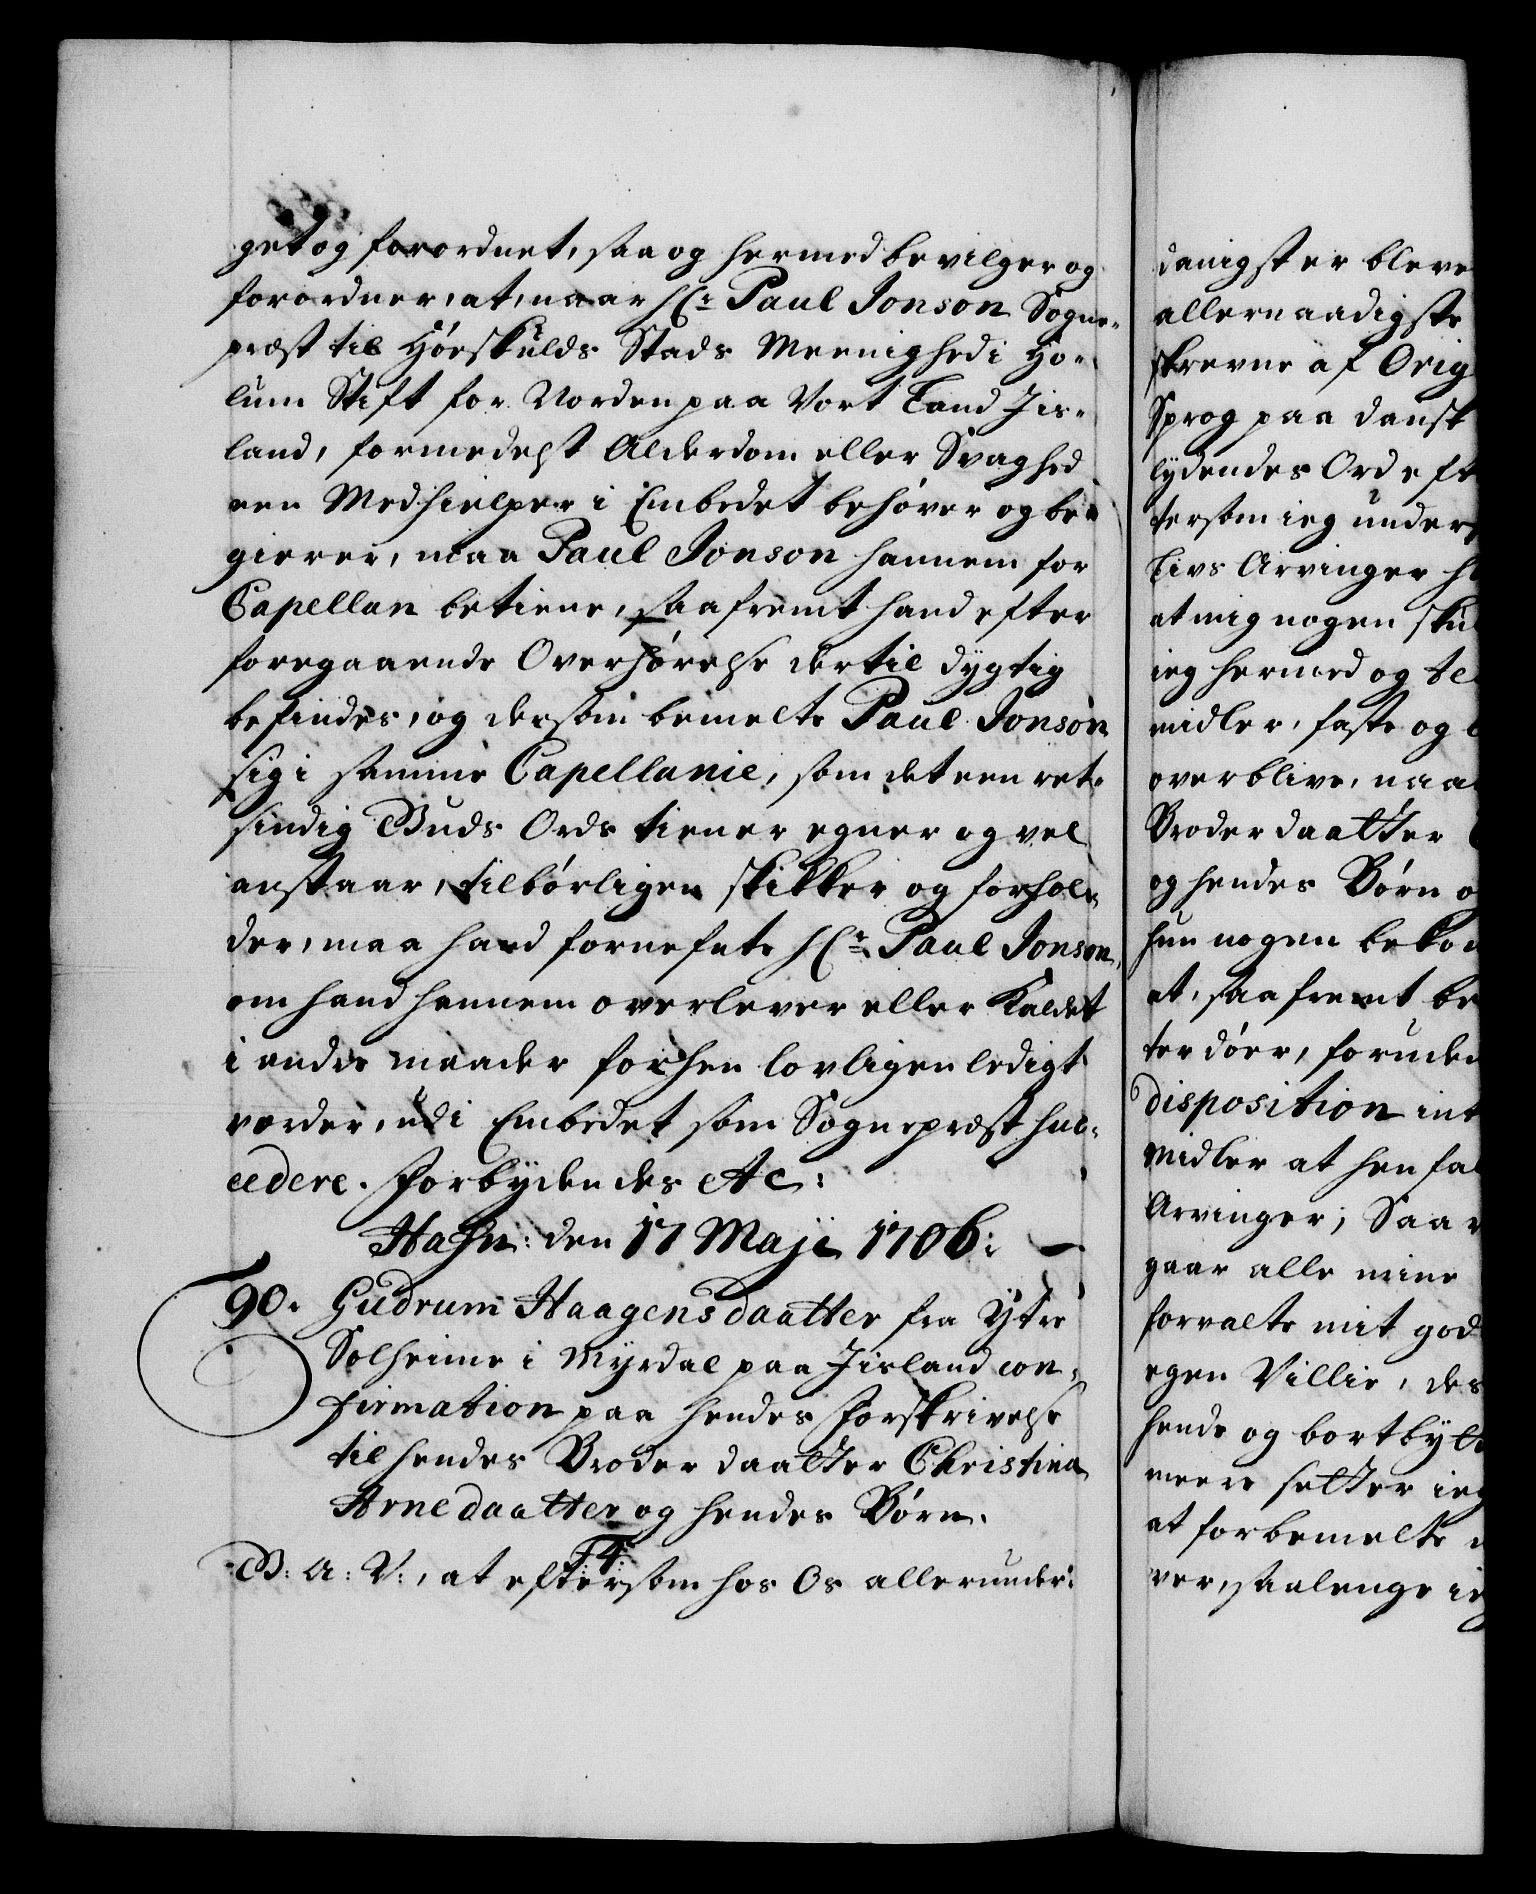 get og forordnet, saa og hermed bevilger og
forordner, at, naar Hr: Paul Jonson Sogne-
præst til Hörskulds Stads Meenighed i Ho-
lum Stift for Norden paa Vort Land Jis-
land, formedelst Alderdom eller Svaghed
een Medhielper i Embedet behöver og be-
gierer, maa Paul Jonson hannem for
Capellan betiene, saafremt hand efter
foregaaende Overhörelse dertil dygtig
befindes, og dersom bemelte Paul Jonson
sig i samme Capellanie, som det een ret-
sindig Guds Ords tiener egner og vel
anstaar, tilbörligen skikker og forhol-
der, maa hand fornefnte Hr: Paul Jonson,
om hand hannem overlever eller Kaldet
i andre maader forhen lovligen ledigt
vorder, udi Embedet som Sognepræst suc-
cedere. Forbydendes etc:
Hafn: den 17 Maji 1706:
90. Gudrum Haagensdaatter fra Ytre
Solheime i Myrdal paa Jisland con-
firmation paa hendes Forskrivelse
til hendes Broder daatter Christina
Arnedaatter og hendes Börn.
F4:
G: A: V:, at eftersom hos Os allerunder-
danigst er bleve
allernaadigste
skrevne af Orig
Sprog paa dansk
lydendes Ord eft
tersom ieg under
Livs Arvinger
at mig nogen sku
ieg hermed og te
midler, faste og
overblive, naa
Broder daatter
og hendes Börn o
hun nogen beko
at, saafremt be
ter döer, foruden
disposition int
midler at henfal
Arvinger; Saa
gaar alle mine
forvalte mit god
egen Villie, des
hende og bortbytt
meere setter ieg
at forbemelte
ver, saalenge ieg